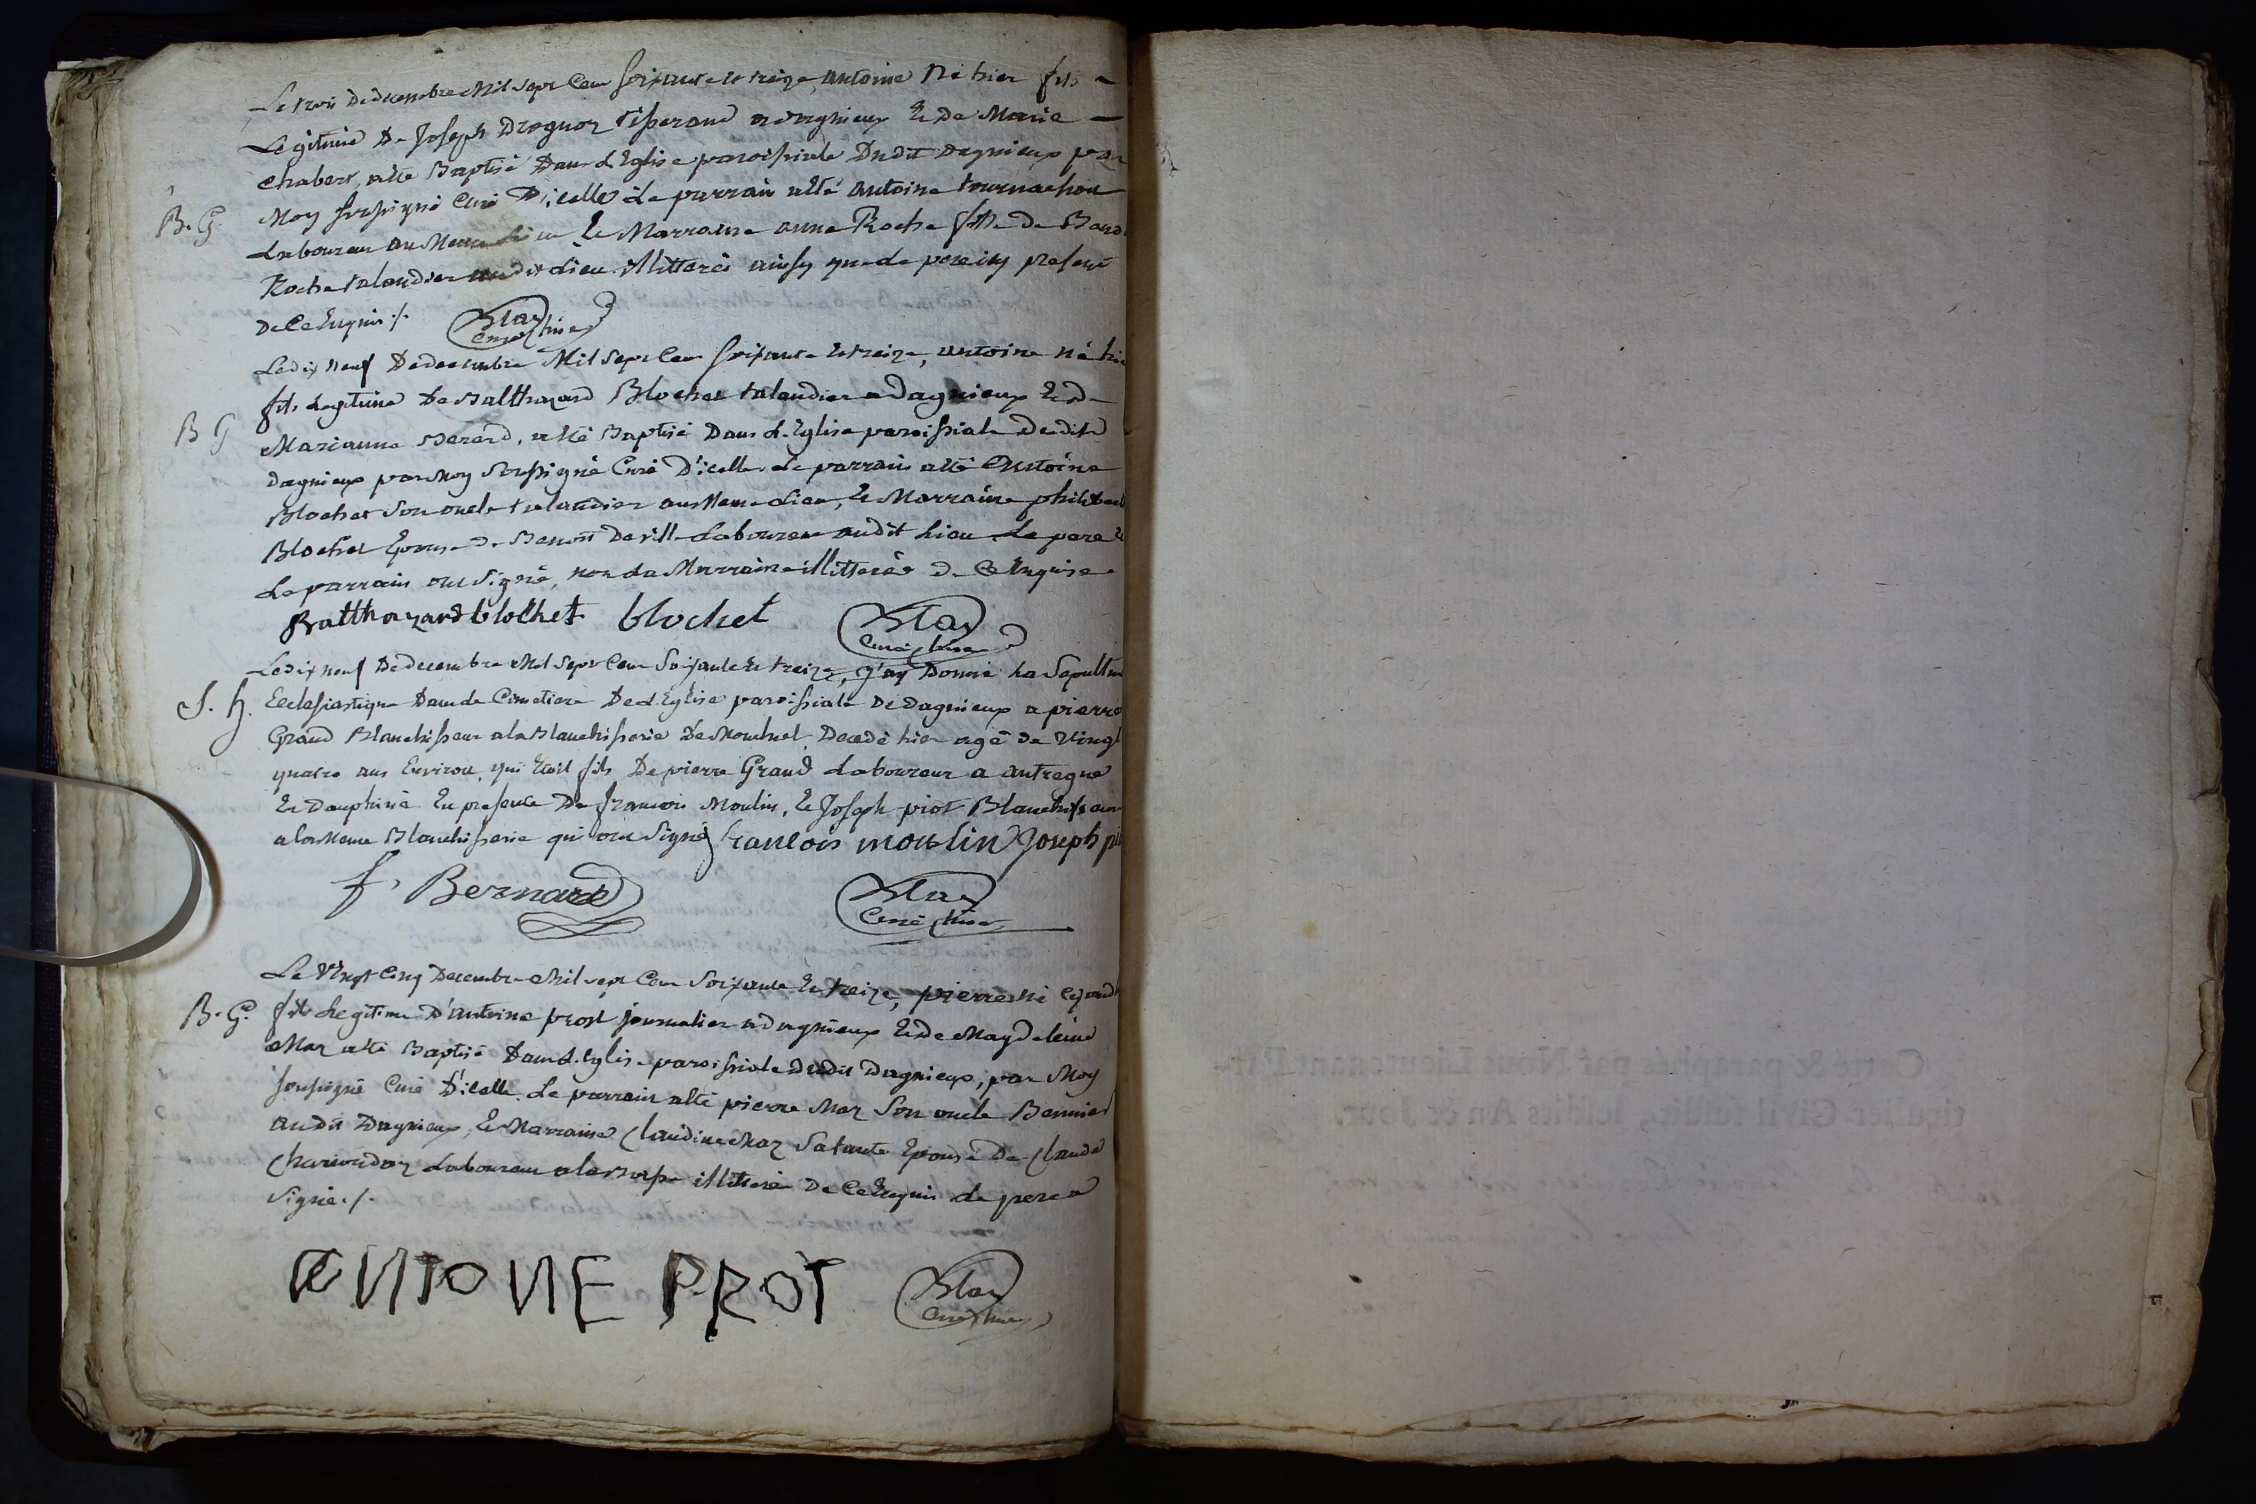 Le trois De decembre Mil Sept Cent soixante et treize, antoine Né hier fils
Légitime De Joseph Droguoz tisserand a dagnieux Et De Marie
chabert, a été Baptisé Dans L'Eglise paroissiale Dudit Dagnieux par
B. G. Moy soussigné Curé D'icelle Le parrain a été antoine tournachon
Laboureur au Meme Lieu Et Marraine anne Roche fille de
Roche talandier audit Lieu illitterés ainsy que Le pere icy present
De Ce Enquis ./.
Curé
Le dix neuf De decembre Mil Sept Cent soixante et treize, antoine né hier
fils Legitime De Balthazard Blochet talandier a Dagnieux Et de
B G Marianne Berard, a été Baptisé Dans L'Eglise paroissiale Dudit
Dagnieux par Moy Soussigné Curé D'icelle. Le parrain a été Antoine
Blochet Son oncle talandier au Meme Lieu, Et Marraine philiberte
Blochet Epouse De Benoit Deville Laboureur audit Lieu Le pere Et
Le parrain ont Signé, non La Marraine illitterée De Ce Enquise
Balthazard blochet blochet
Curé
Le dix neuf De decembre Mil Sept Cent Soixante Et treize, J'ay Donné La Sepulture
S. h. Ecclesiastique Dans Le Cimetiere De L'Eglise paroissiale De Dagnieux a pierre
Grand Blanchisseur a la Blanchisserie De Montluel Decedé hier agé De Vingt
quatre ans Environ, qui Etoit fils De pierre Grand Laboureur a antregne
En Dauphiné En presence De francois Moulin, Et Joseph piot Blanchisseurs
a la Meme Blanchisserie qui ont Signé francois moulin Joseph
f. Bernard
Curé
Le Vingt Cinq Decembre Mil Sept Cent Soixante Et treize, pierre Né
B. G. fils Legitime D'antoine prost journalier a dagnieux Et De Magdeleine
Maz a été Baptisé Dans L'Eglise paroissiale Dudit Dagnieux, par Moy
soussigné Curé D'icelle. Le parrain a été pierre Maz Son oncle
audit Dagnieux, Et Marraine Claudine Maz Sa tante Epouse De Claude
Laboureur illitterés De Ce Enquis Le pere a
Signé ./.
ANTOINE PROT
Curé